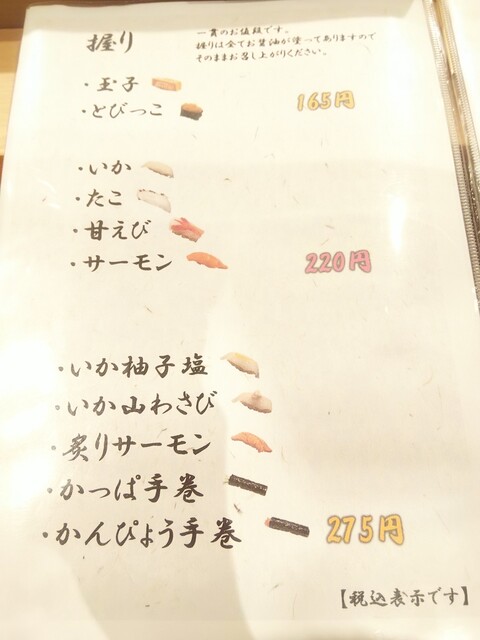 握り
一貫のお値段です。
握りは全てお醤油が塗ってありますので
そのままお召し上がりください。
・玉子
・とびっこ
165円
・いか
・たこ
・甘えび
・サーモン
220円
・いか柚子塩
・いか山わさび
・炙りサーモン
・かっぱ手巻
・かんぴょう手巻
275円
【税込表示です】